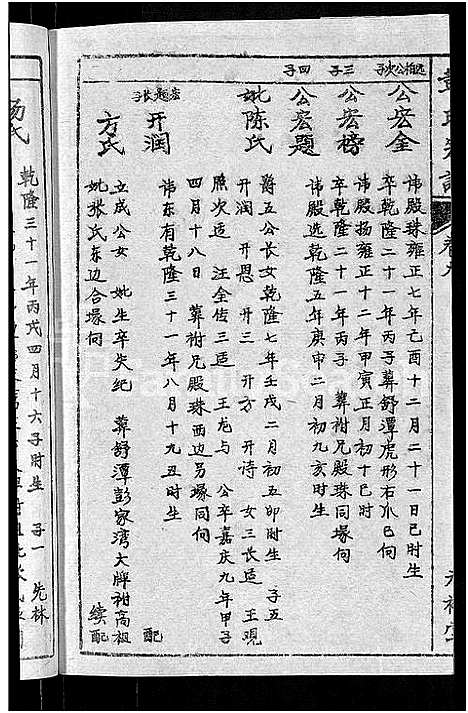 远柏公次子
三子
四子
公宏全
讳殿珠雍正七年己酉十二月二十一日巳时生
卒乾隆二十一年丙子葬舒潭虎形右爪巳向
公宏榜
讳殿扬雍正十二年甲寅正月初十巳时
卒乾隆二十一年丙子 葬祔兄殿珠同塚向
公宏题
讳殿选乾隆五年庚申二月初九亥时生
妣陈氏
爵五公长女乾隆七年壬戌二月初五卯时生 子五
开润 开恩 开三 开方 开诗 女三长适 王观
照次适 汪全传三适 王龙与 公卒嘉庆九年甲子
四月十八日 葬祔兄殿珠西边另塚同向
宏题长子
开润
讳东有乾隆三十一年八月十九丑时生
配
方氏
立成公女 妣生卒失纪 葬舒潭彭家湾大牌祔高祖
妣张氏东边合塚向
续配
杨氏
乾隆三十一年丙戌四月十六子时生 子一 先林